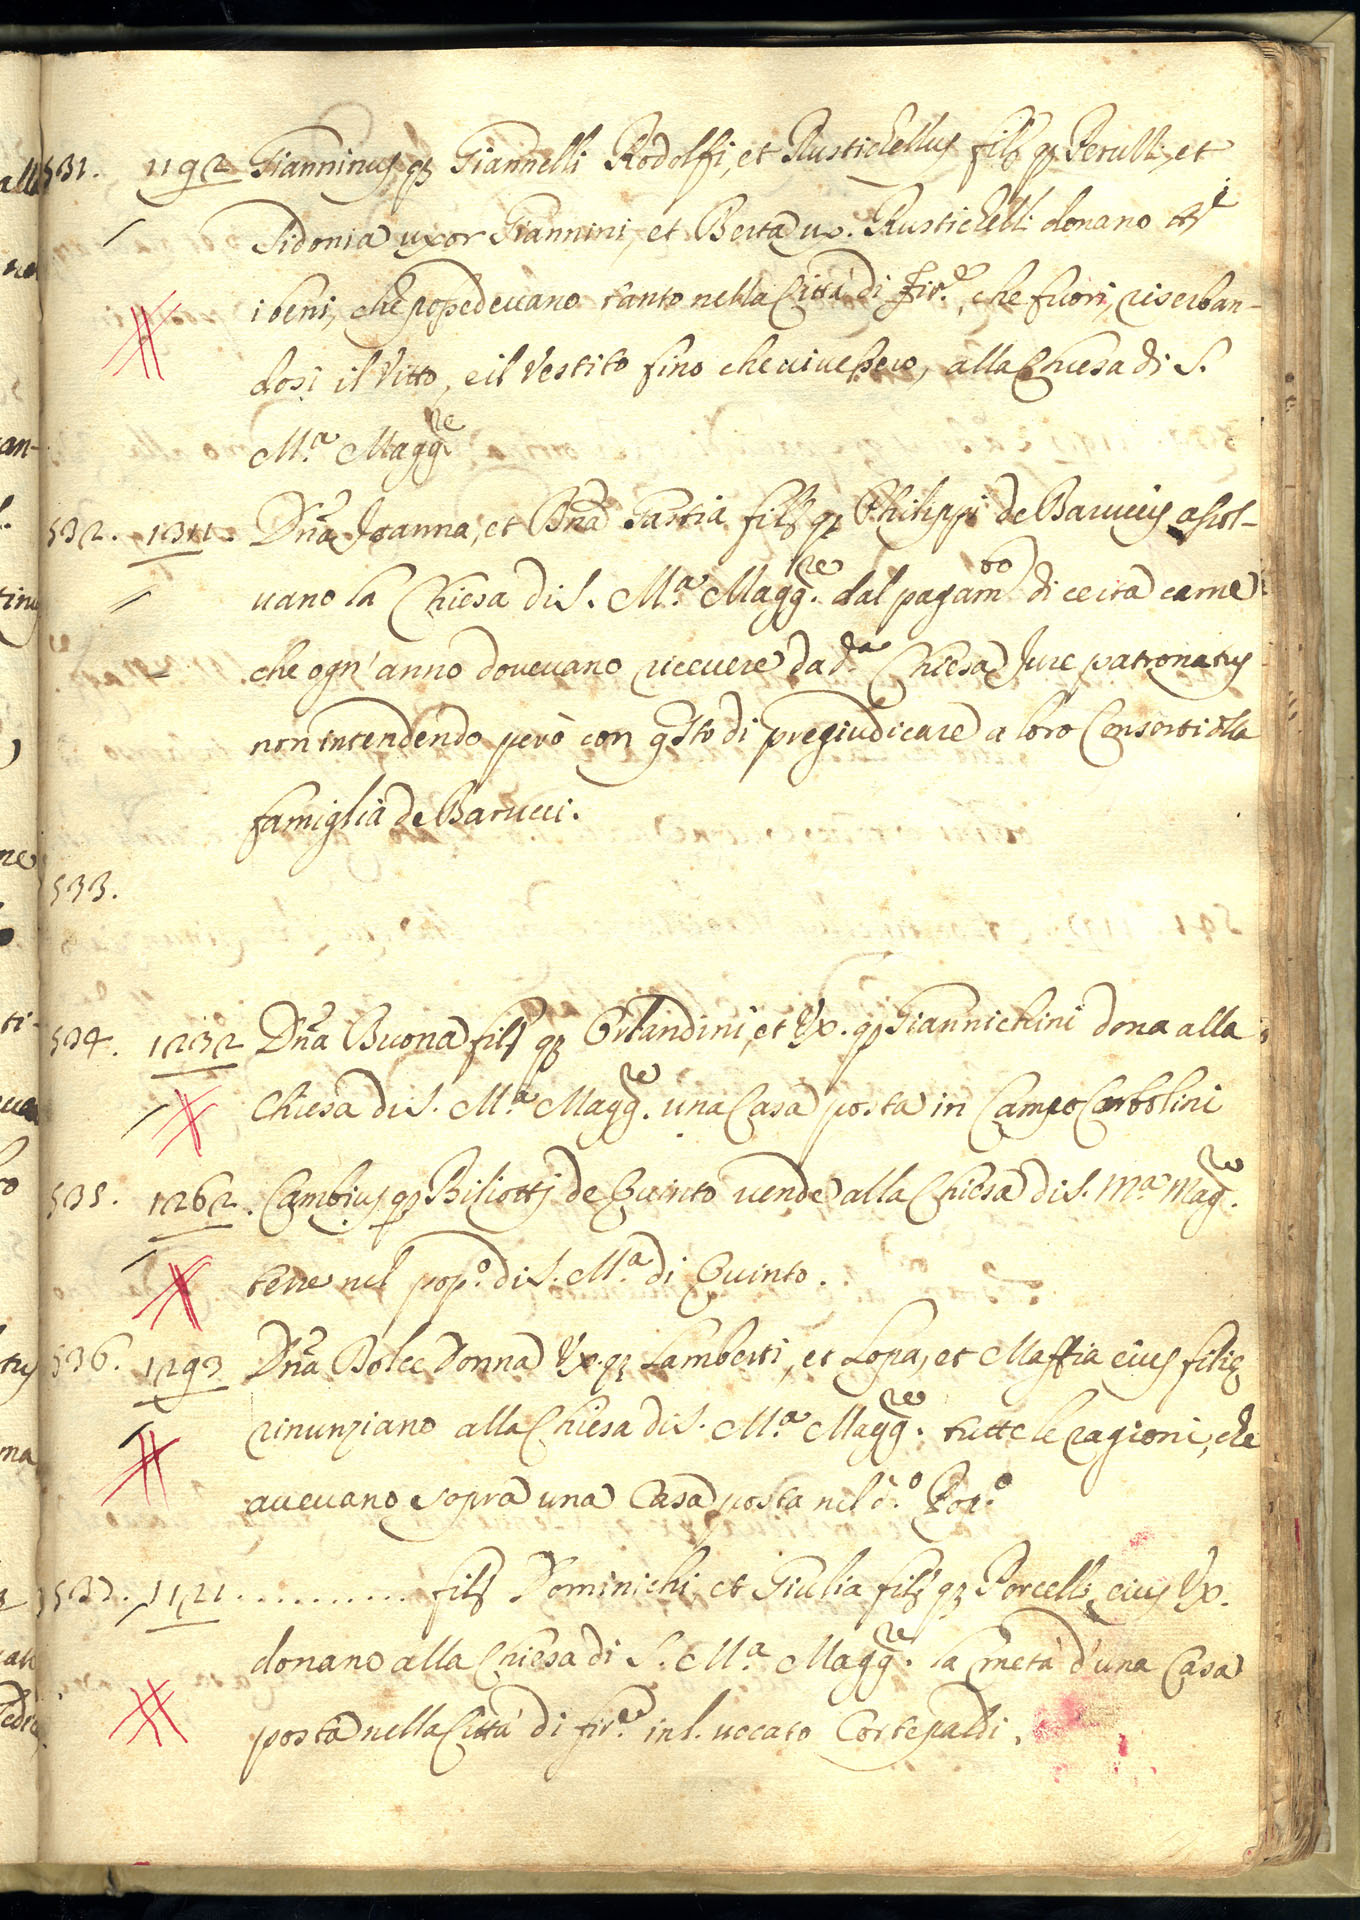 531. 1192 Gianninus qz Giannelli Rodolfi, et Rustichellus filz qz Perulli, et
Sidonia uxor Giannini, et Berta ux. Rustichelli donano
i beni, che possedevano tanto nella Città di Fir.e, che fuori, riserban-
dosi il Vitto, e il Vestito fino che vivessero, alla Chiesa di S.
M.a Magg.re
532. 1311. Dna Joanna, et Dna filz qz Philippi de Baruciis assol-
vano la Chiesa di S. M.a Magg.re dal pagam.to di certa carne
che ogn' anno dovevano ricevere da d.a Chiesa Jure patronatus
non intendendo però con qsto di pregiudicare a loro Consorti dlla
famiglia de Barucci.
533.
534. 1232 Dna Buona filz qz Orlandini, et Vx. qz Giannichini dona alla
Chiesa di S. M.a Magg.re una Casa posta in Campo Corbolini
535. 1262. Cambius qz Biliotti de Quinto vende alla Chiesa di S. M.a Mag.re
terre nel pop.o di S. M.a di Quinto.
536. 1293 Dna Dolce Donna Vx. qz Lamberti, et Lopa, et Maffia eius filie
rinunziano alla Chiesa di S. M.a Magg.re tutte le ragioni, che
avevano sopra una Casa posta nel d.o Pop.o
537. 1121. .......... filz Dominichi, et Giulia filz qz Porcelli eius Vx.
donano alla Chiesa di S. M.a Magg.re la metà d'una Casa
posta nella Città di fir.e in l. vocato Cortepaldi.